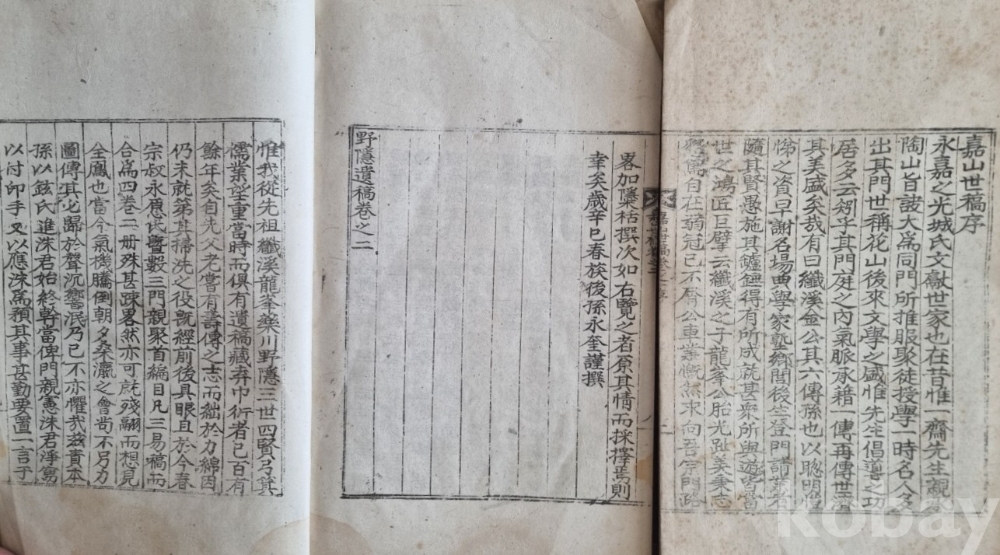 嘉山世稿序
永嘉之光城氏文獻世家也在昔惟一齋先生親
陶山旨訣大爲同門所推服聚徒授學一時名人多
出其門世稱花山後來文學之盛惟先生倡導之功
居多云刱乎其門庭之內氣脈承藉一傳再傳世濟
其美盛矣哉有曰纖溪金公其六傳孫也以聰明愷
悌之資早謝名場典學家塾鄕閭後生登門請業者
隨其賢愚施其鑪錘得有所成就甚衆所與遊皆當
世之鴻匠巨擘云纖溪之子龍峯公胎光趾美秉志
自在弱冠已不屑公車求向吾家門路
嘉山世稿卷之
畧加隱栝撰次如右覽之者原其情而採擇焉則
幸矣歲辛巳春族後孫永奎謹撰
野隱遺稿卷之二
惟我從先祖纖溪龍峯藥川野隱三世四賢弓箕
儒業望重當時而俱有遺稿藏弆巾衍者已百有
餘年矣自先父老嘗有壽傳之志而絀於力綿因
仍未就第其掃洗之役旣經前後具眼且於今春
宗叔永慝氏曁數三門親聚首編目凡三易稿而
合爲四卷二冊殊甚疎畧然亦可於殘翮而想見
全鳳也當今氣機騰倒朝夕桑瀛之會尙不另力
圖傳其必歸於聲沉響泯乃已不亦懼哉玆賫本
孫以鉉氏進洙君始終幹當俾門親憲洙君淨寫
以付印手又以應洙爲顏其事甚勤要置一言于
kobay